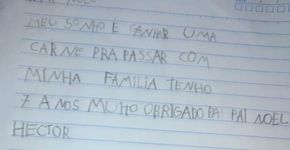 MEU SONHO É GANHAR UMA
CARNE PRA PASSAR COM
MINHA FAMILIA TENHO
7 ANOS MUITO OBRIGADO PAPAI NOEL
HECTOR